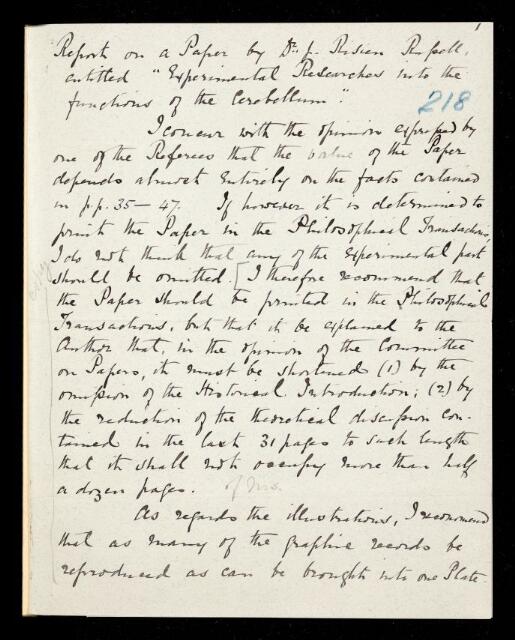 1
Report on a Paper by Dr. J. Risien Russell,
entitled "Experimental Researches into the
functions of the Cerebellum".
218
I concur with the opinion expressed by
one of the Referees that the value of the Paper
depends almost entirely on the facts contained
in pp. 35—47. If however it is determined to
print the Paper in the Philosophical Transactions,
I do not think that any of the experimental part
should be omitted. [I therefore recommend that
the Paper should be printed in the Philosophical
Transactions, but that it be explained to the
Author that, in the opinion of the Committee
on Papers, it must be shortened (1) by the
omission of the Historical Introduction; (2) by
the reduction of the theoretical discussion con-
tained in the last 31 pages to such length
that it shall not occupy more than half
a dozen pages. of Ms.
As regards the illustrations, I recommend
that as many of the graphic records be
reproduced as can be brought into one Plate.